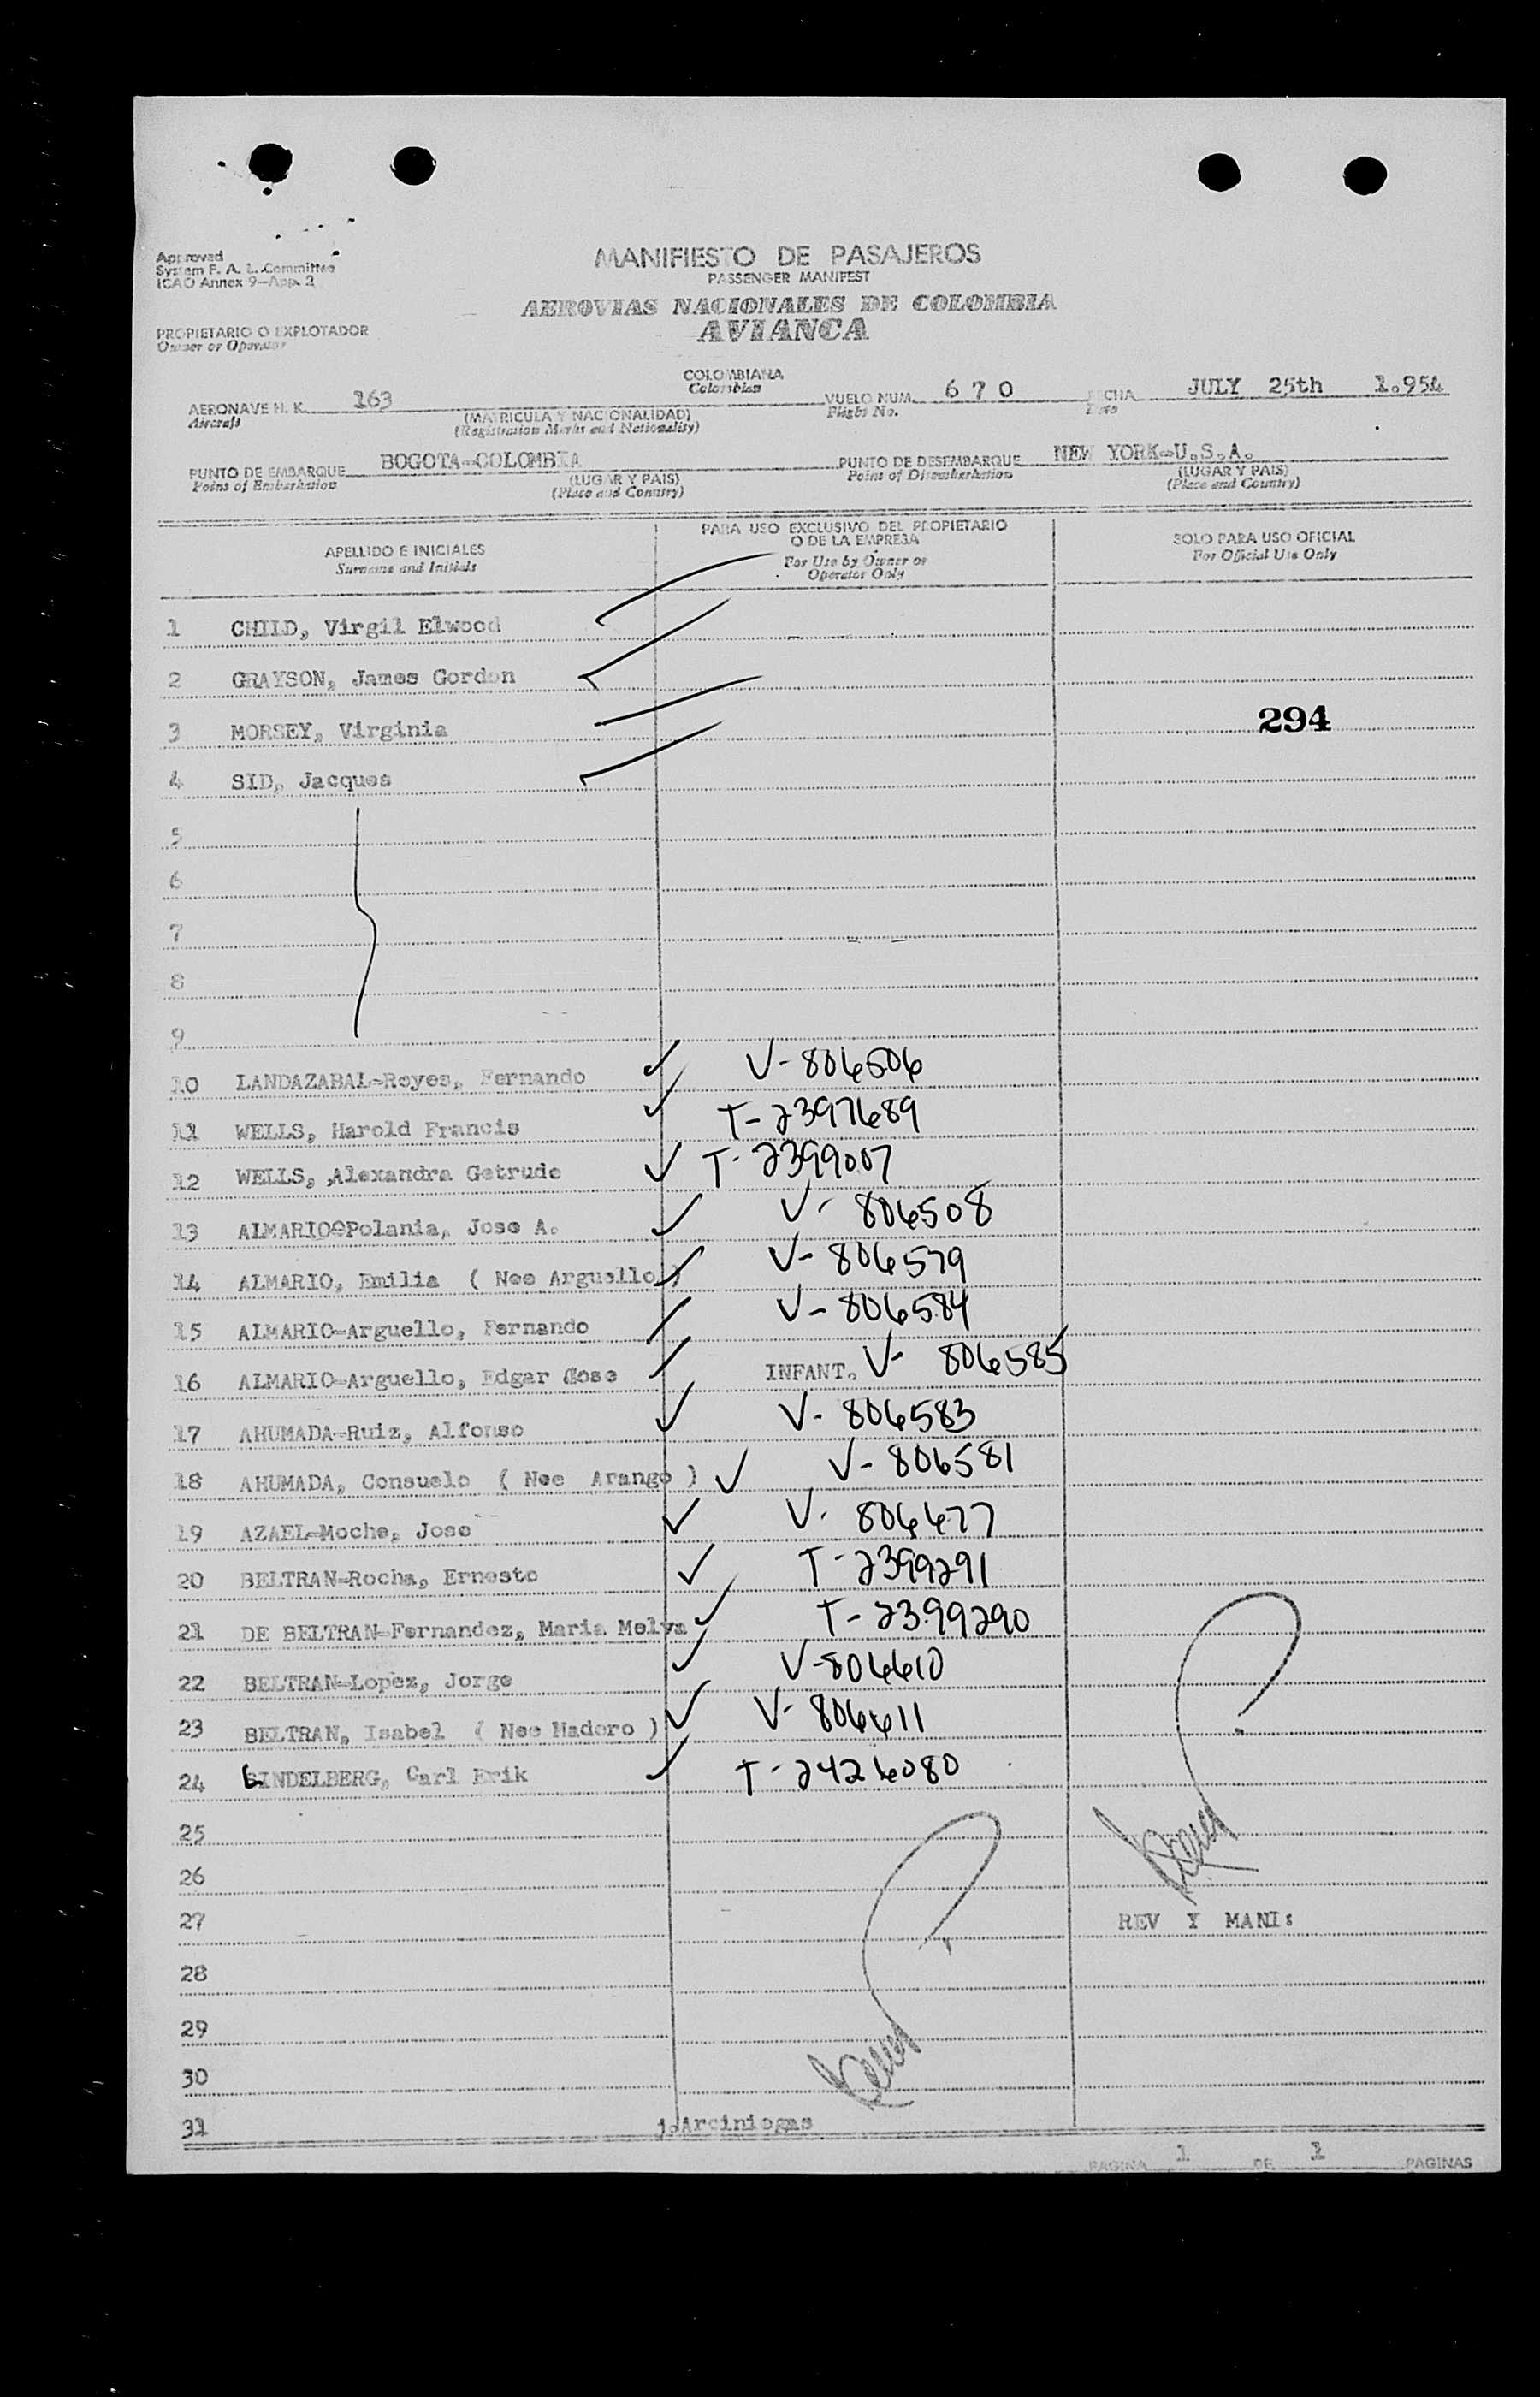 Approved
System F. A. L. Committee
ICAO Annex 9-App. 2
MANIFIESTO DE PASAJEROS
PASSENGER MANIFEST
AEROVIAS NACIONALES DE COLOMBIA
AVIANCA
PROPIETARIO O EXPLOTADOR
Owner or Operator
COLOMBIANA
Colombian
AERONAVE H. K. 163
Aircraft
(MATRICULA Y NACIONALIDAD)
(Registration Marks and Nationality)
VUELO NUM. 6 7 0
Flight No.
FECHA JULY 25th 1.954
Date
PUNTO DE EMBARQUE BOGOTA-COLOMBIA
Point of Embarkation
(LUGAR Y PAIS)
(Place and Country)
PUNTO DE DESEMBARQUE NEW YORK-U.S.A.
Point of Disembarkation
(LUGAR Y PAIS)
(Place and Country)
APELLIDO E INICIALES
Surname and Initials
PARA USO EXCLUSIVO DEL PROPIETARIO
O DE LA EMPRESA
For Use by Owner or
Operator Only
SOLO PARA USO OFICIAL
For Official Use Only
1 CHILD, Virgil Elwood
2 GRAYSON, James Gordon
3 MORSEY, Virginia 294
4 SID, Jacques
5
6
7
8
9
10 LANDAZABAL-Reyes, Fernando V-806506
11 WELLS, Harold Francis T-2397689
12 WELLS, Alexandra Getrude T-2399007
13 ALMARIO Polania, Jose A. V-806508
14 ALMARIO, Emilia ( Nee Arguello ) V-806579
15 ALMARIO-Arguello, Fernando V-806584
16 ALMARIO-Arguello, Edgar Jose INFANT. V-806585
17 AHUMADA-Ruiz, Alfonso V-806583
18 AHUMADA, Consuelo ( Nee Arango ) V-806581
19 AZAEL-Moche, Jose V-806477
20 BELTRAN-Rocha, Ernesto T-2399291
21 DE BELTRAN-Fernandez, Maria Melva T-2399290
22 BELTRAN-Lopez, Jorge V-806610
23 BELTRAN, Isabel ( Nee Madero ) V-806611
24 LINDELBERG, Carl Erik T-2426080
25
26
27 REV Y MANI:
28
29
30
31 j.Arciniegas
PAGINA 1 DE 1 PAGINAS